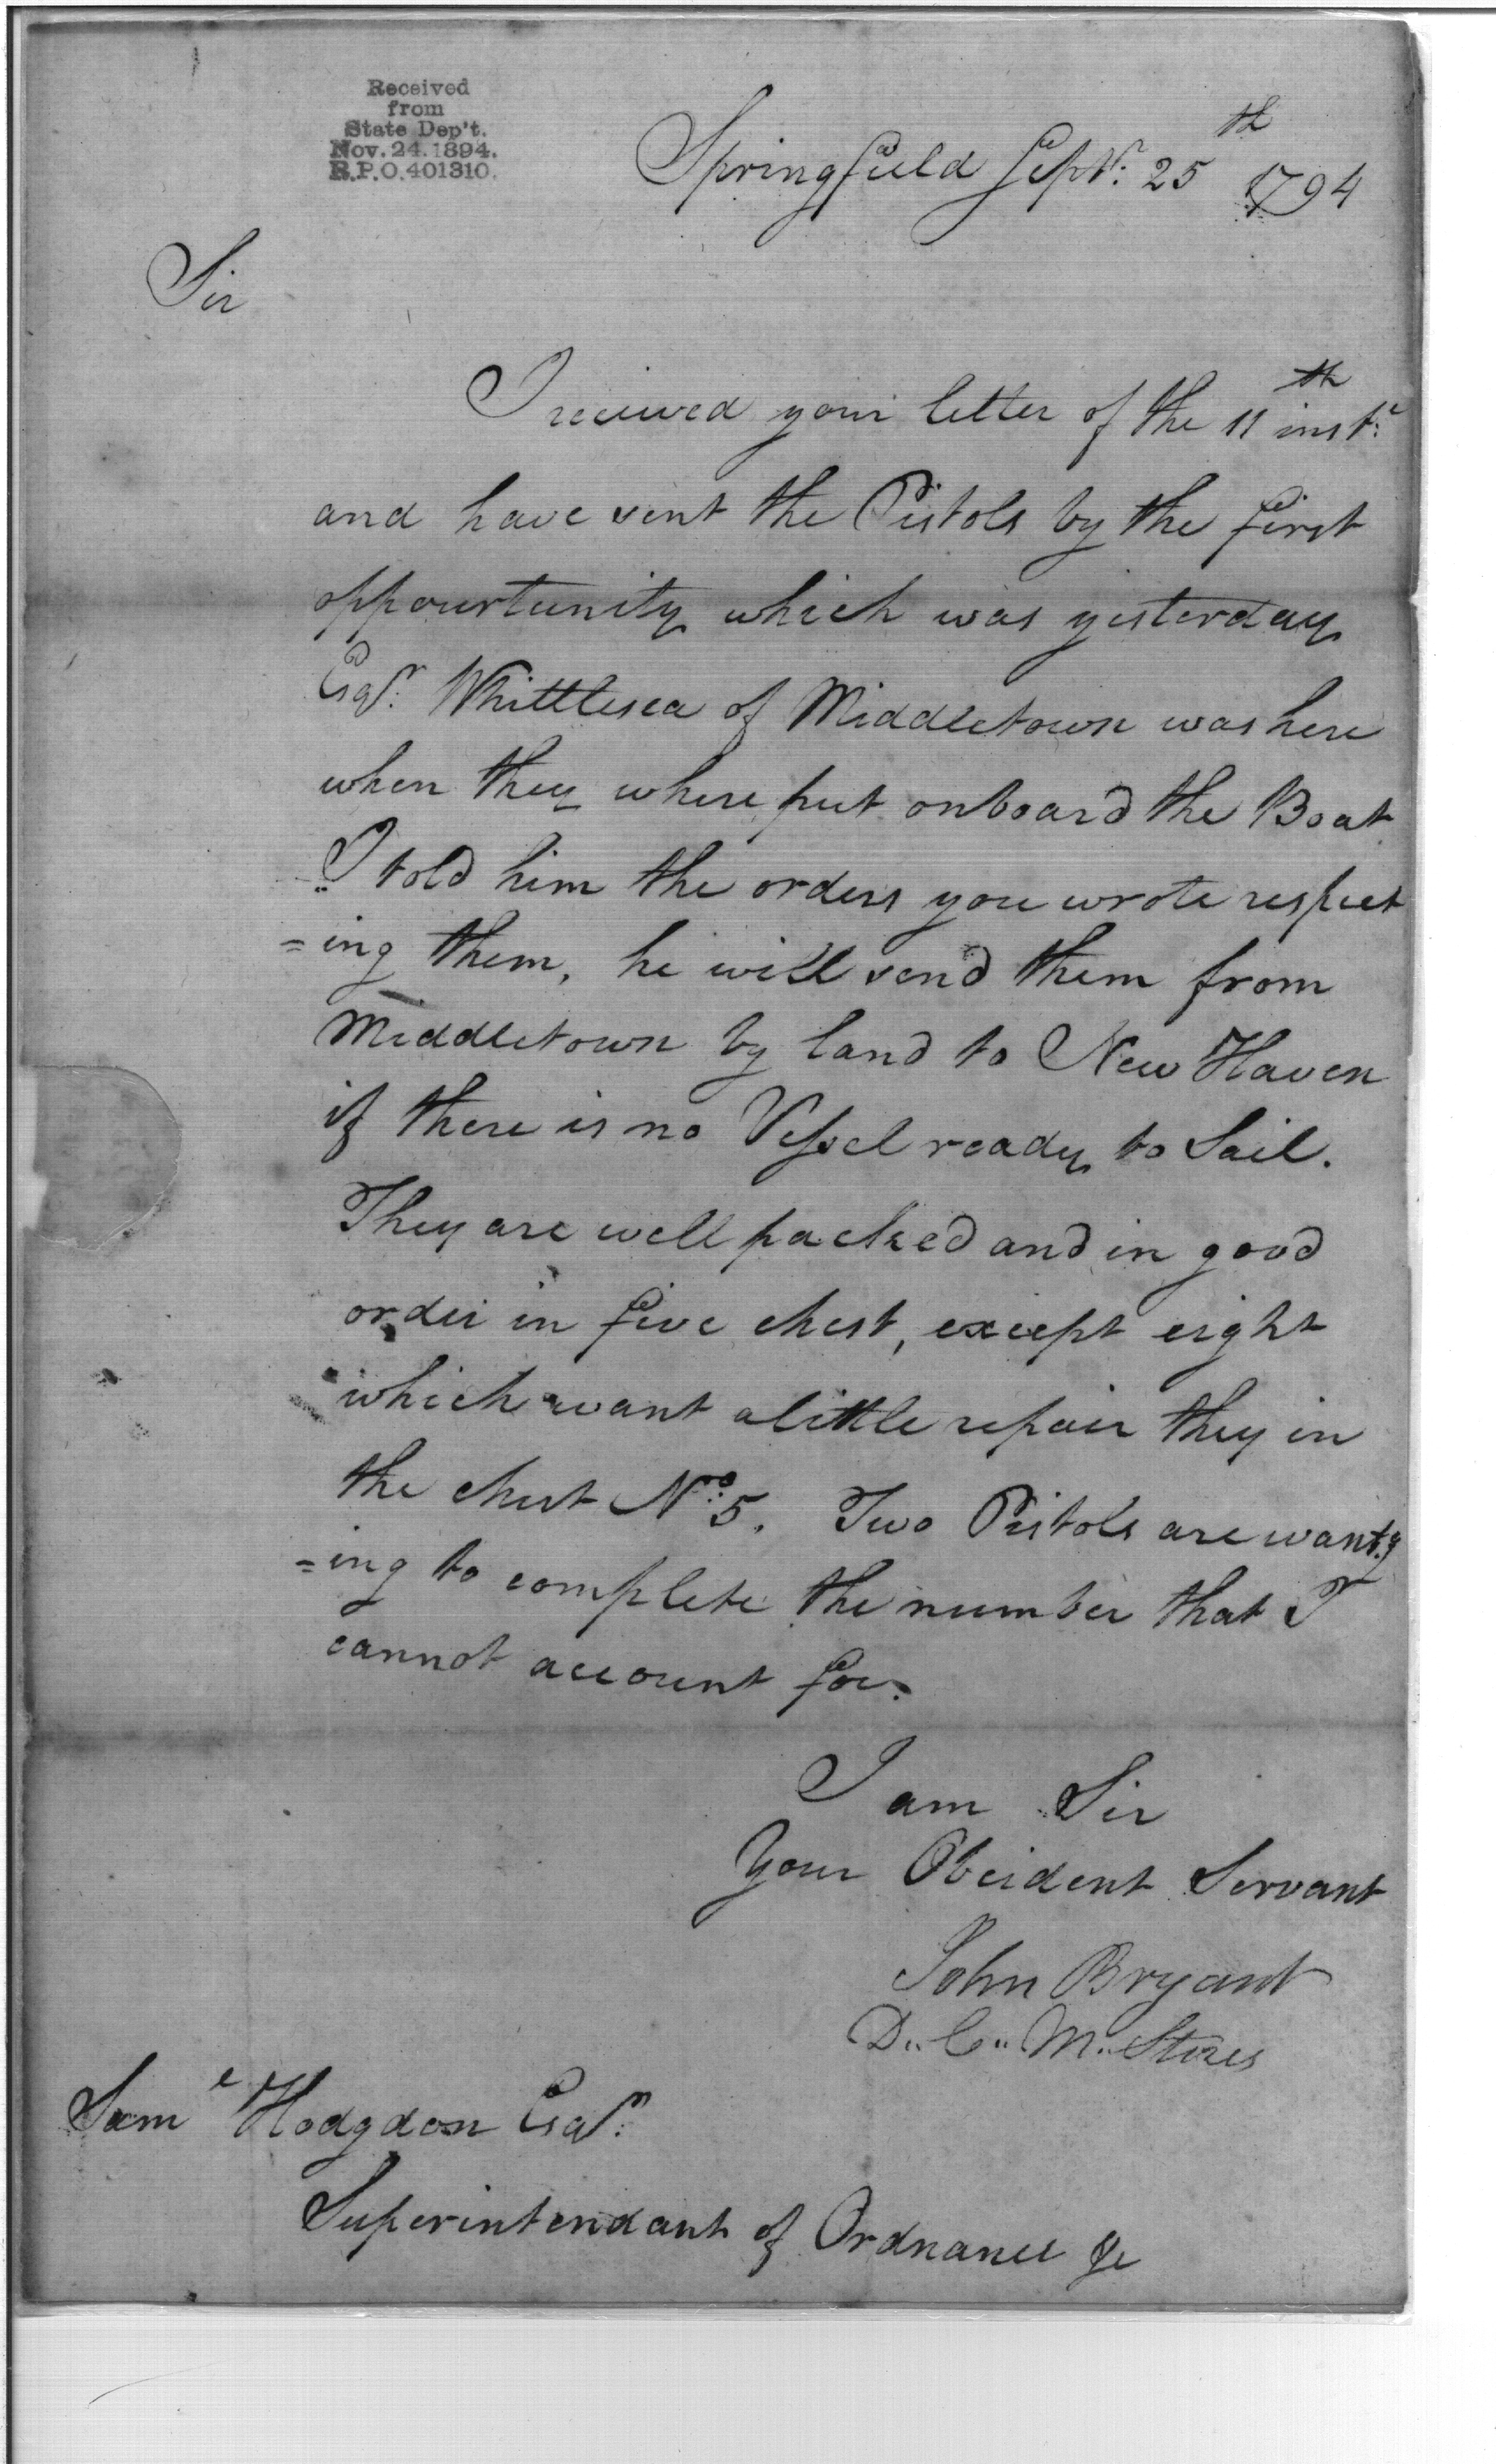 Received
from
State Dep't.
Nov. 24. 1894.
R.P.O. 401310.
Springfield Septr: 25th 1794
Sir
I received your letter of the 11th instt:
and have sent the Pistols by the first
oppourtunity which was yesterday
Esqr: Whittlesea of Middletown was here
when they where put onboard the Boat
I told him the orders you wrote respect
=ing them, he will send them from
Middletown by land to New Haven
if there is no Vessel ready to Sail.
They are well packed and in good
order in five chest, except eight
which want a little repair they in
the chest No: 5. Two Pistols are want.g
=ing to complete the number that I
cannot account for.
I am Sir
Your Obeident Servant
John Bryant
D.. C.. M.. Stores
Saml Hodgdon Esqr:
Superintendant of Ordnance &c